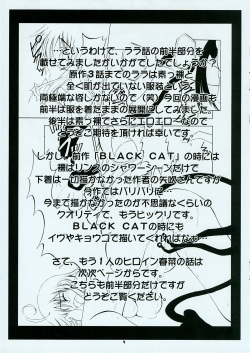 …というわけで、ララ話の前半部分を
載せてみましたがいかがでしたでしょうか?
原作3話までのララは素っ裸と
全く肌が出ていない服装という
両極端な姿しかないので(笑)今回の漫画も
前半は服を着たままの展開にしてみました。
後半は素っ裸でさらにエロエロなので
ご期待を頂ければ幸いです。
しかし、前作「BLACK CAT」の時には
裸はリンスのシャワーシーンだけで
下着は一切描かなかった作者の矢吹さんですが
今作ではバリバリに…
今まで描かなかったのが不思議なくらいの
クオリティで、もうビックリです。
BLACK CATの時にも
イヴやキョウコで描いてくれればなぁ…
さて、もう1人のヒロイン春菜の話は
次次ページからです。
こちらも前半部分だけですが
どうぞご覧ください。